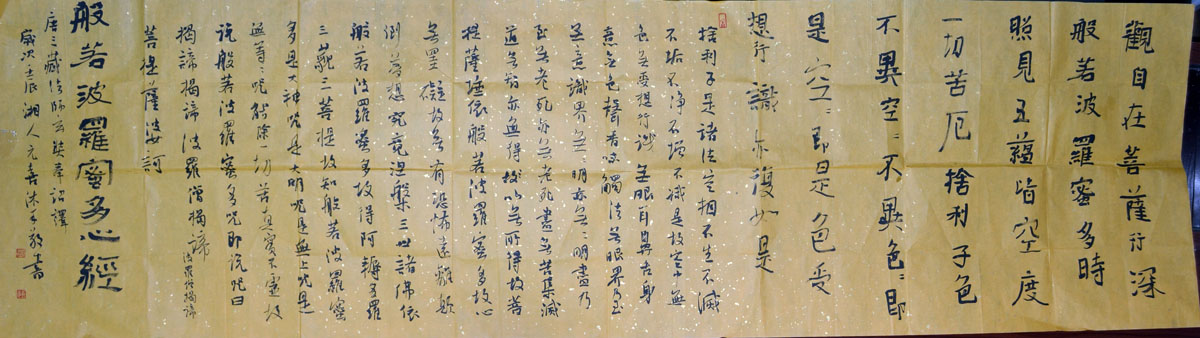 觀自在菩薩行深
般若波羅蜜多時
照見五蘊皆空度
一切苦厄捨利子色
不異空〻不異色〻即
是空〻即是色受
想行識亦復如是
捨利子是諸法空相不生不滅
不垢不淨不增不滅是故空中無
色無受想行識無眼耳鼻舌身
意無色聲香味觸法無眼界乃至
無意識界無〻明亦無〻明盡乃
至無老死亦無老死盡無苦集滅
道無智亦無得故以無所得故菩
提薩埵依般若波羅蜜多故心
無罣礙故無有恐怖遠離顛
倒夢想究竟涅槃三世諸佛依
般若波羅蜜多故得阿耨多羅
三藐三菩提故知般若波羅蜜
多是大神咒是大明咒是無上咒是
無等〻咒能除一切苦真實不虛故
說般若波羅蜜多咒即說咒曰
揭諦揭諦波羅揭諦波羅僧揭諦
菩提薩婆訶
般若波羅蜜多心經
唐三藏法師玄奘奉詔譯
歲次壬辰湘人元喜沐手敬書